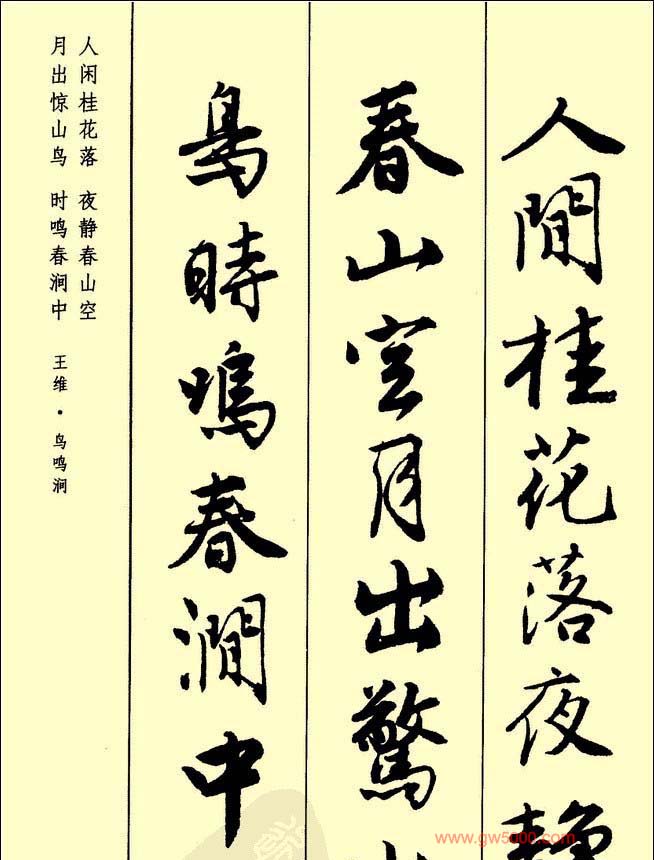 人閒桂花落夜静
春山空月出驚山
鳥時鳴春澗中
人闲桂花落 夜静春山空
月出惊山鸟 时鸣春涧中 王维·鸟鸣涧
www.gw5000.com